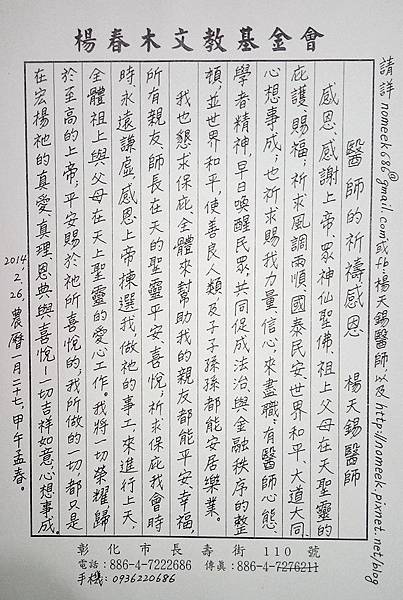 楊春木文教基金會
請詳nomeek686@gmail.com或fb:楊天錫醫師以及http://nomeek.pixnet.net/blog
醫師的祈禱感恩 楊天錫醫師
感恩、感謝上帝、眾神仙聖佛、祖上父母在天聖靈的
庇護、賜福;祈求風調雨順、國泰民安世界和平、大道大同、
心想事成;也祈求賜我力量、信心來盡職;有醫師心態、
學者精神,早日喚醒民眾,共同促成法治、與金融秩序的整
頓,並世界和平,使善良人類及子子孫孫都能安居樂業。
我也懇求保庇全體來幫助我的親友都能平安、幸福,
所有親友、師長在天的聖靈平安、喜悅;祈求保庇我會時
時永遠謙虛感恩上帝揀選我,做祂的事工,來進行上天、
全體祖上與父母在天上聖靈的愛心工作。我將一切榮耀歸
於至高的上帝;平安賜於祂所喜悅的,我所做的一切,都只是
在宏楊祂的真愛、真理、恩典與喜悅——一切吉祥如意、心想事成。
2014.2.26,農曆一月二十七,甲午孟春。
彰化市長壽街110號
電話:886-4-7222686 傳真:886-4-7276211
手機:0936220686